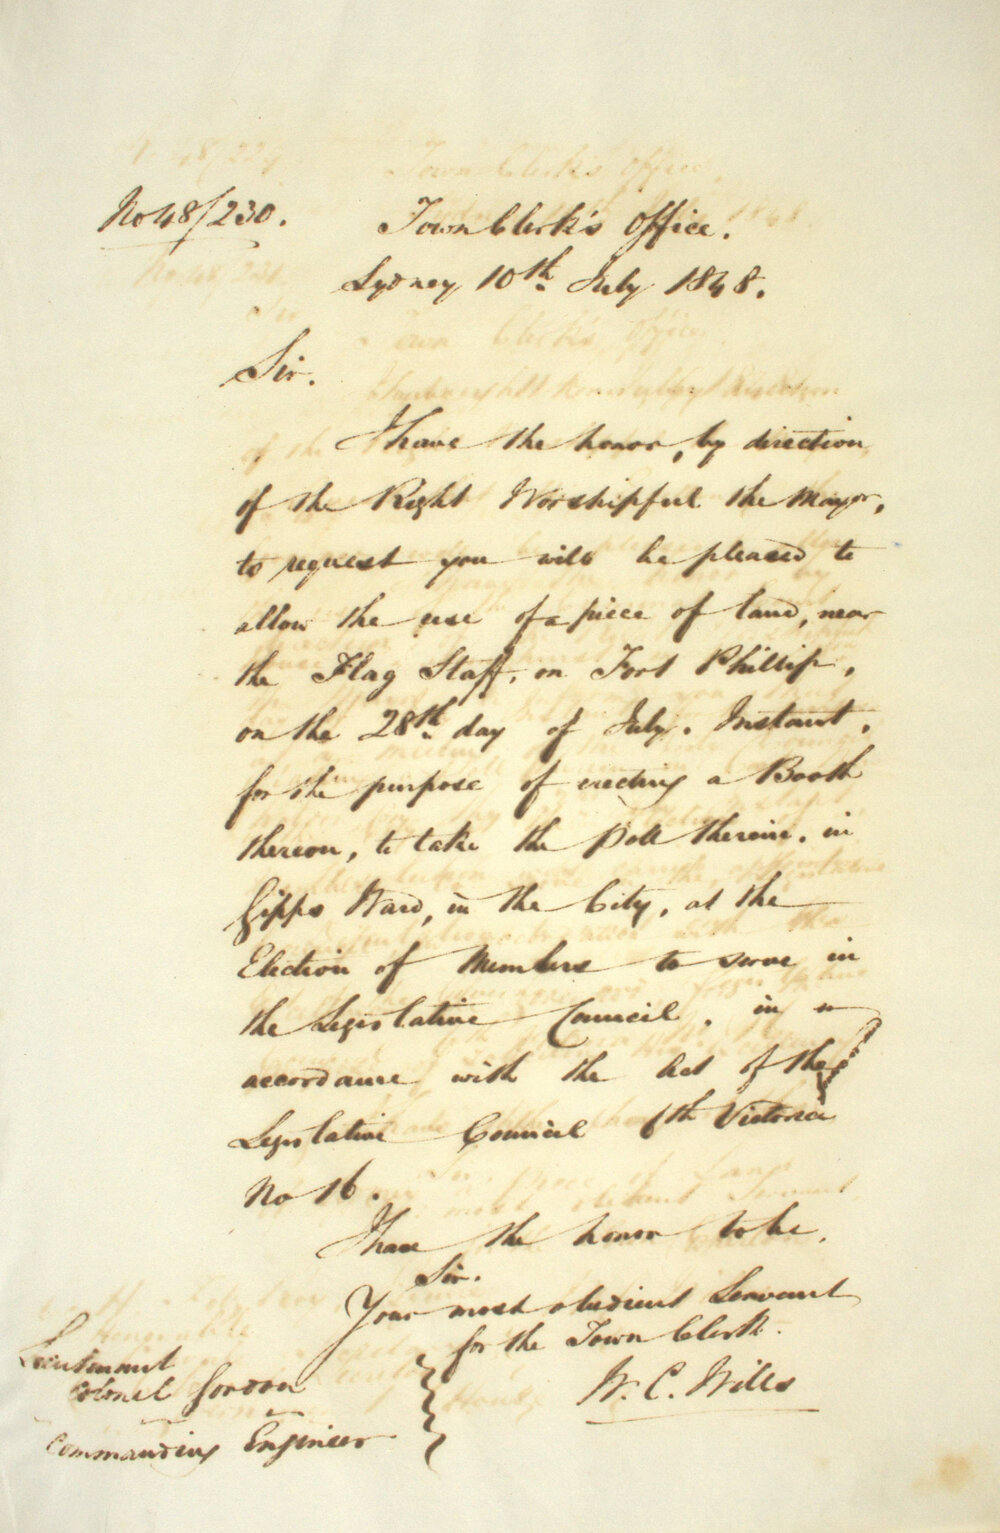 No 48/230.
Town Clerk's Office.
Sydney 10th July 1848.
Sir.
I have the honor, by direction
of the Right Worshipful the Mayor,
to request you will be pleased to
allow the use of a piece of land, near
the Flag Staff, on Fort Phillip,
on the 28th day of July. Instant,
for the purpose of erecting a Booth
thereon, to take the Poll therein, in
Gipps Ward, in the City, at the
Election of Members to serve in
the Legislative Council, in
accordance with the Act of the
Legislative Council 6th Victoria
No 16.
I have the honor to be,
Sir.
Your most obedient Servant
for the Town Clerk.
W. C. Wills
Lieutenant
Colonel Gordon
Commanding Engineer